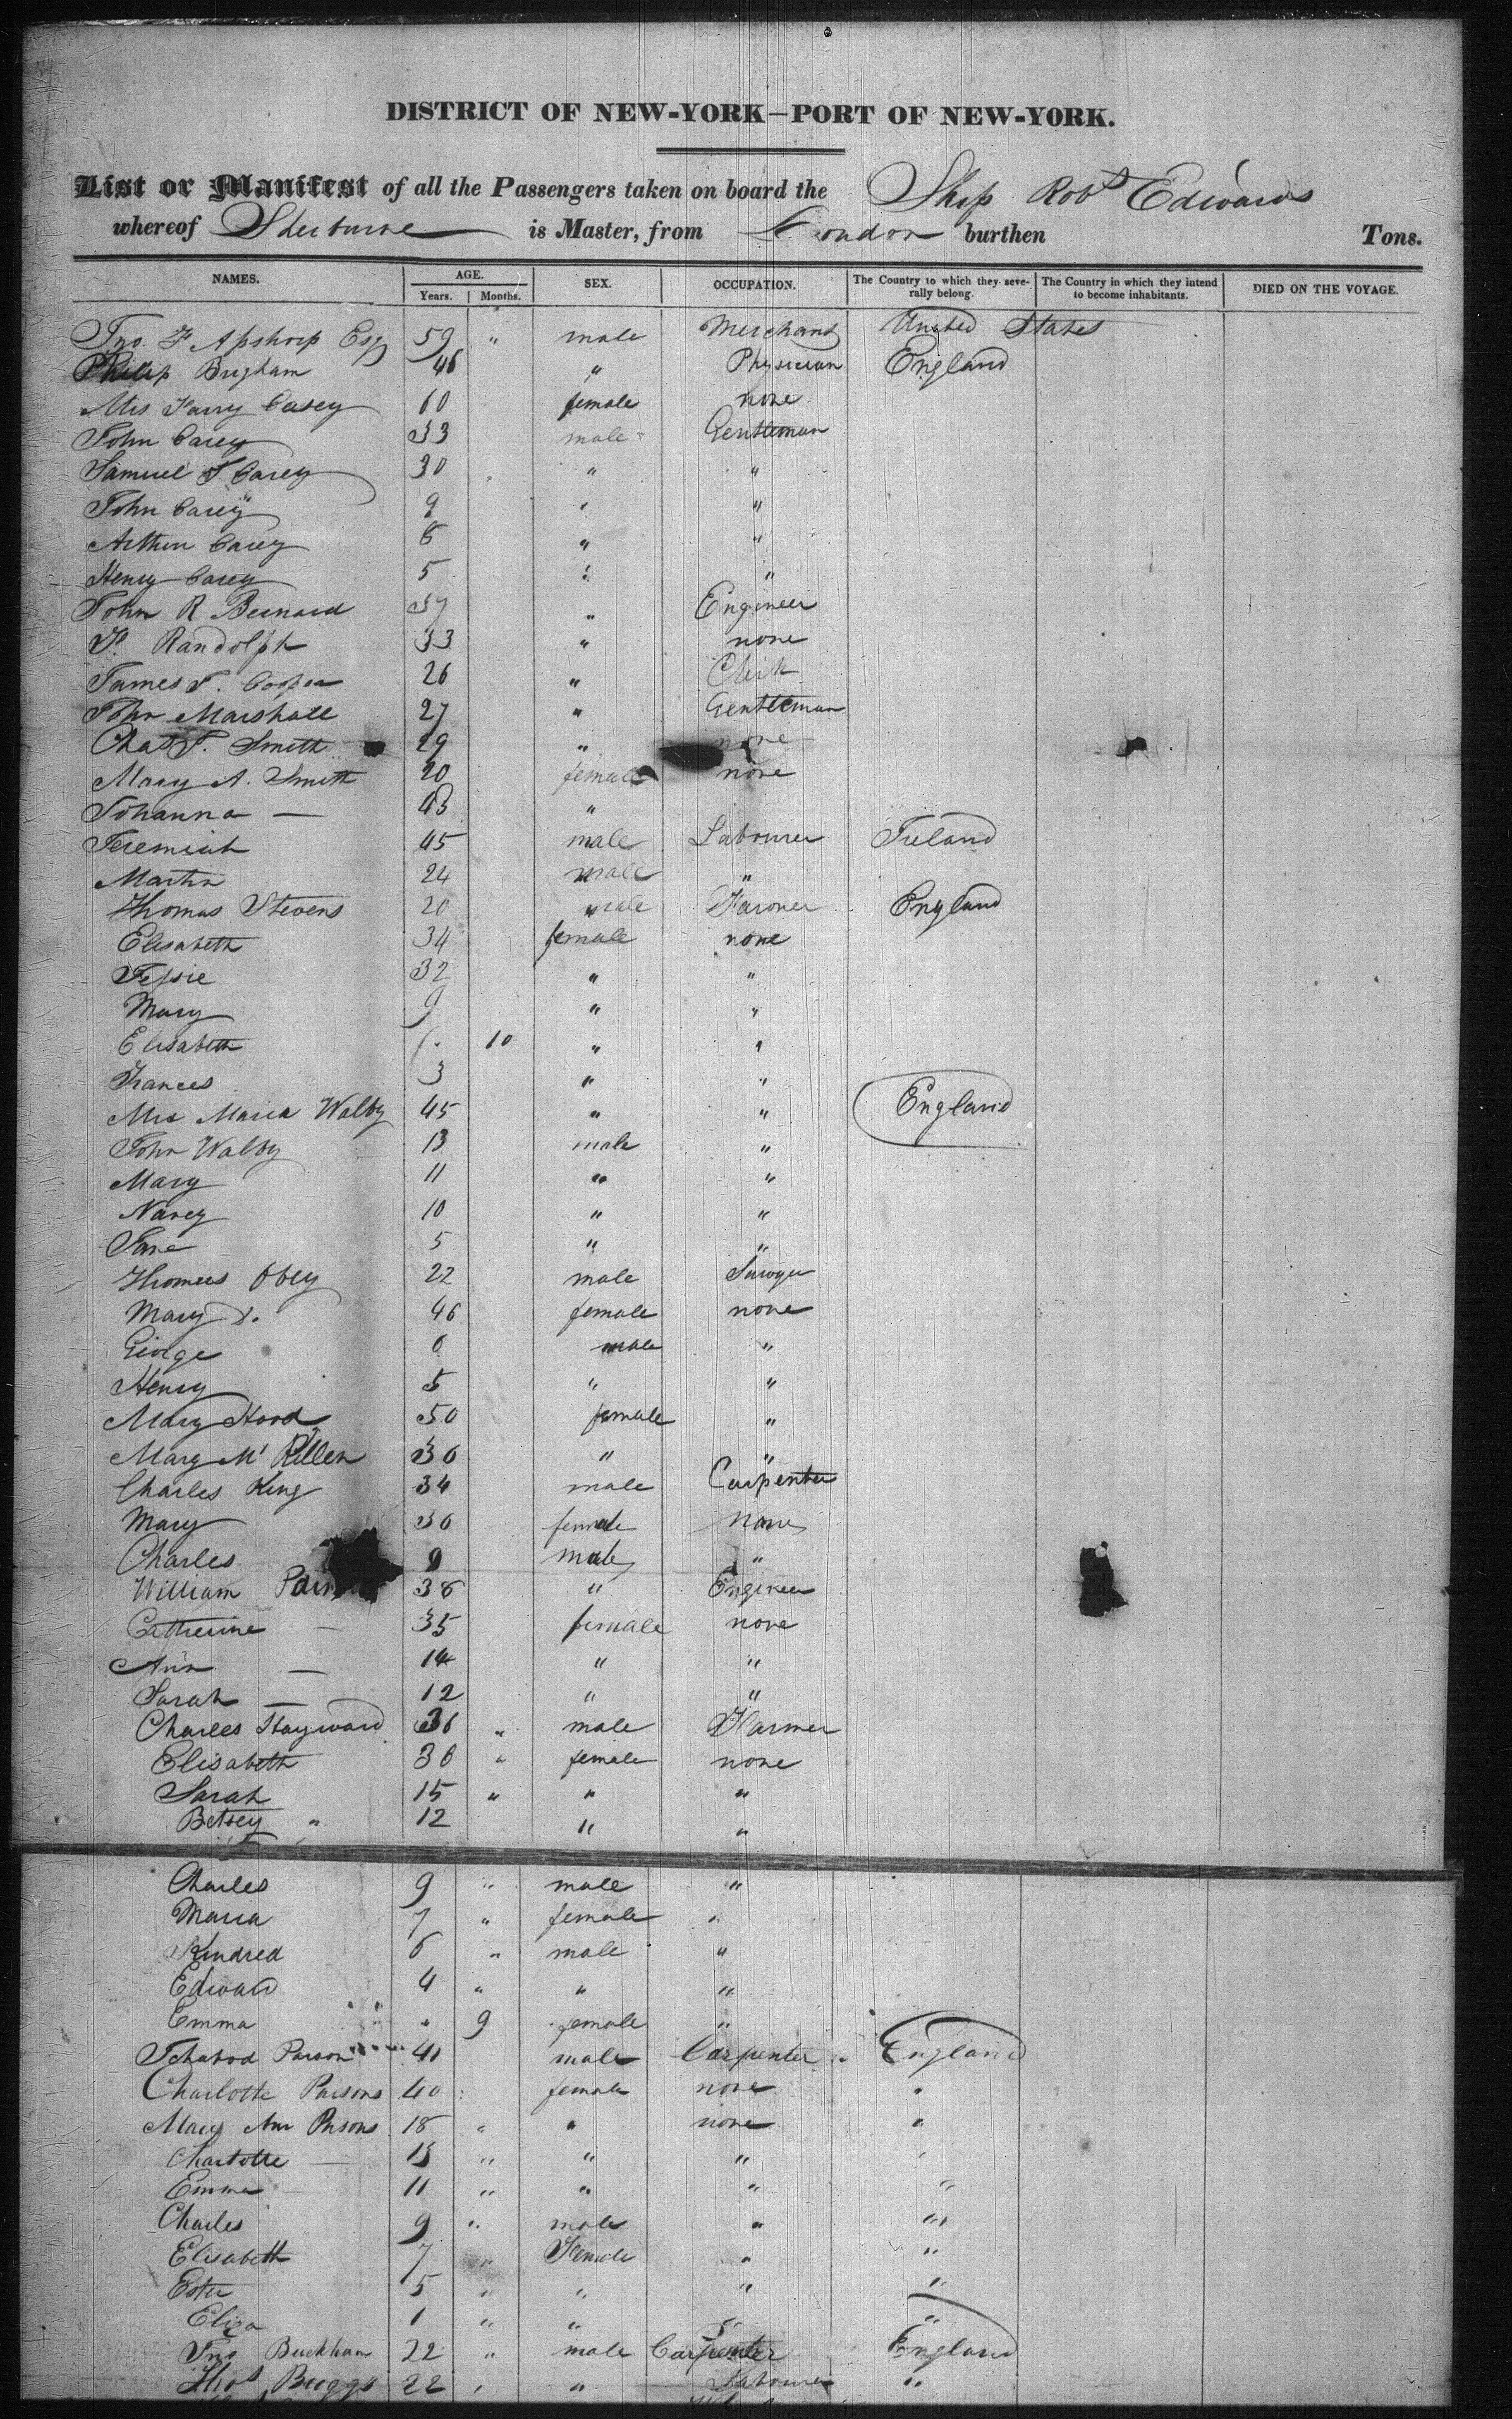 DISTRICT OF NEW-YORK—PORT OF NEW-YORK.
List or Manifest of all the Passengers taken on board the Ship Robt Edwards
whereof Sherburne is Master, from London burthen Tons.
NAMES. AGE. Years. Months. SEX. OCCUPATION. The Country to which they severally belong. The Country in which they intend to become inhabitants. DIED ON THE VOYAGE.
Jno. F Apthorp Esq 59 " male Merchant United States
Philip Brigham 46 " Physician England
Mrs Casey 60 female none
John Carey 33 male Gentleman
Samuel T Carey 30 " "
John Carey 9 " "
Arthur Carey 8 " "
Henry Carey 5 " "
John R Bernard 37 " Engineer
Randolph 33 " none
James F. Cooper 26 " Clerk
John Marshall 27 " Gentleman
Chas F. Smith 29 " none
Mary A. Smith 20 female none
Johanna — 43 "
Jeremiah 45 male Labourer Ireland
Martin 24 male "
Thomas Stevens 20 male Farmer England
Elisabeth 34 female none
Jessie 32 " "
Mary 9 " "
Elisabeth 10 " "
Frances 3 " "
Mrs Maria Walby 45 " " England
John Walby 13 male "
Mary 11 " "
Nancy 10 " "
Jane 5 " "
Thomas Obey 22 male Sawyer
Mary 46 female none
George 6 male "
Henry 5 " "
Mary Hood 50 female "
Mary Mc Killen 36 " "
Charles King 34 male Carpenter
Mary 36 female none
Charles 9 male "
William 38 " Engineer
Catherine — 35 female none
Ann — 14 " "
Sarah — 12 " "
Charles Hayward 36 " male Farmer
Elisabeth 36 " female none
Sarah 15 " " "
Betsey " 12 " "
Charles 9 " male "
Maria 7 " female "
Kindred 6 " male "
Edward 4 " " "
Emma " 9 female "
Ichabod Parson 41 male Carpenter " England
Charlotte Parsons 40 female none "
Mary Ann Parsons 18 " " none "
Charlotte — 13 " " " "
Emma 11 " " " "
Charles 9 " male " "
Elisabeth 7 " Female " "
Ester 5 " " " "
Eliza 1 " " " "
Jno Buckham 22 " male Carpenter England
Thos Briggs 22 " " Labourer "